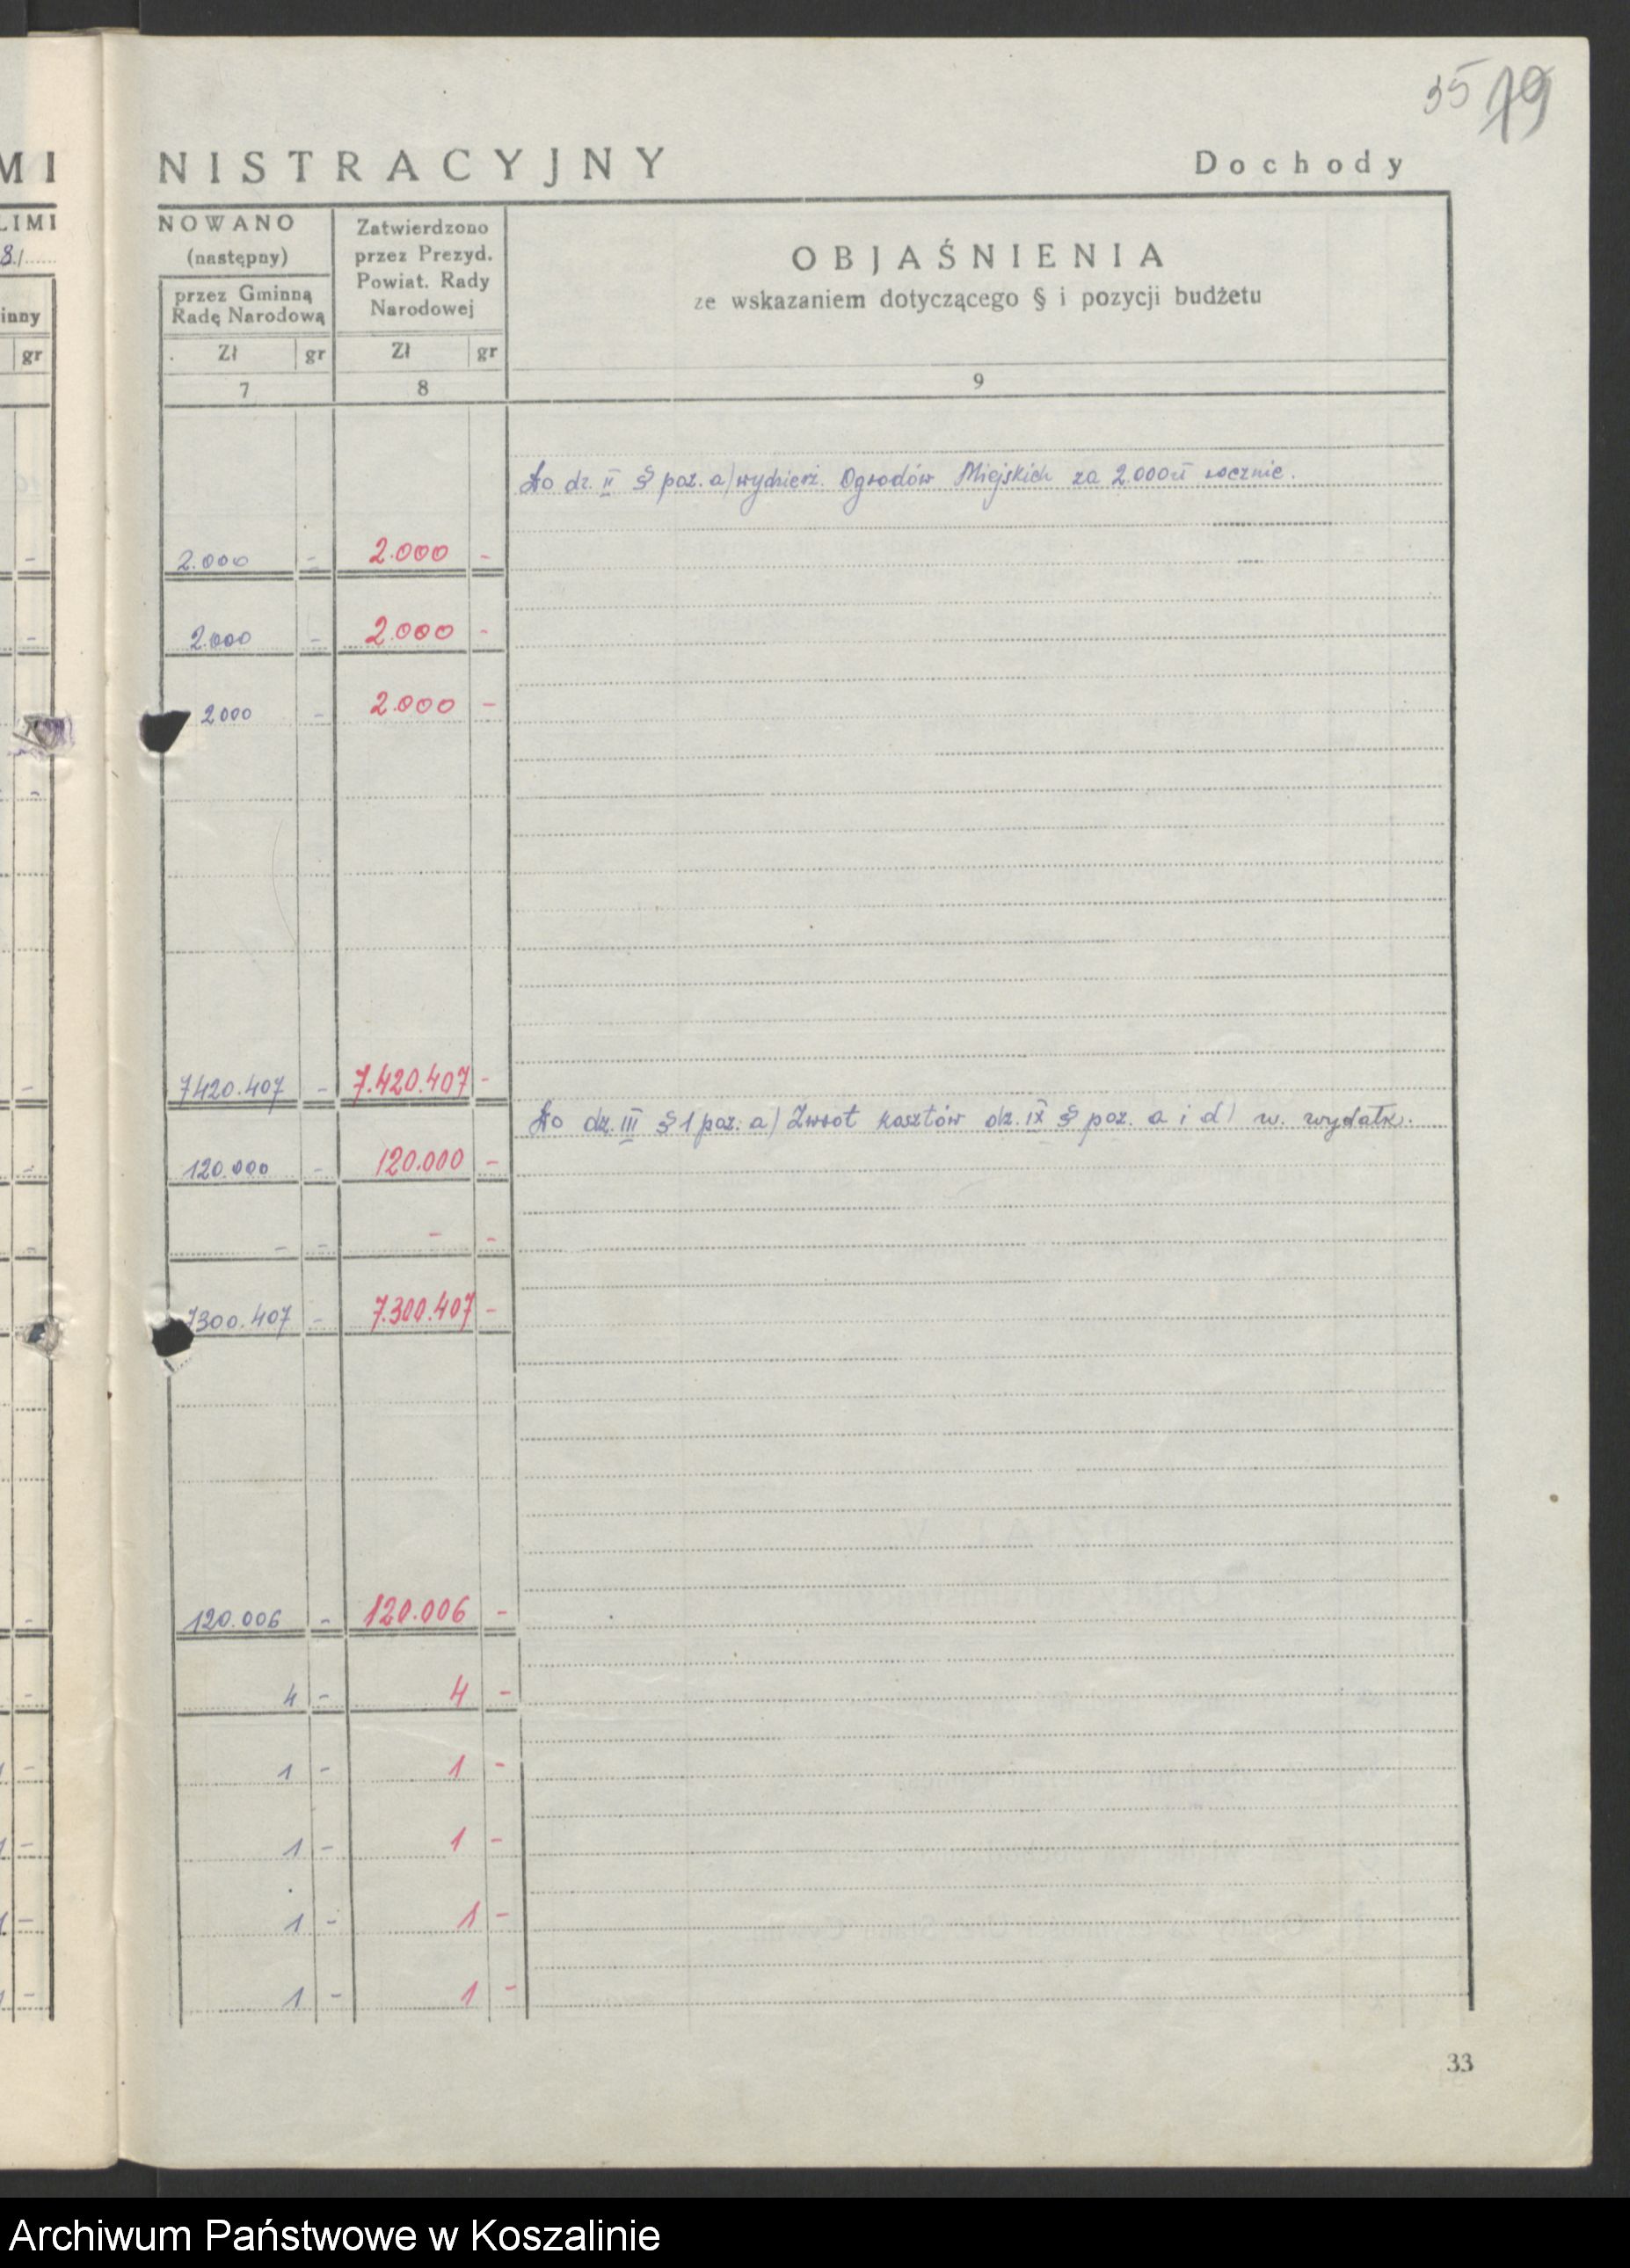 35 19
MI NISTRACYJNY Dochody
LIMI NOWANO
8.1 (następny)
inny przez Gminną
Radę Narodową
Zatwierdzono
przez Prezyd.
Powiat. Rady
Narodowej
OBJAŚNIENIA
ze wskazaniem dotyczącego § i pozycji budżetu
gr Zł gr Zł gr
7 8 9
do dz. II § poz. a) wydzierż. Ogrodów Miejskich za 2.000 zł rocznie.
- 2.000 - 2.000 -
- 2.000 - 2.000 -
2000 - 2.000 -
-
- 7420.407 - 7.420.407 -
do dz. III § 1 poz. a) Zwrot kosztów dz. IX § poz. a i d) w. wydatk.
- 120.000 - 120.000 -
- - - - -
7300.407 - 7.300.407 -
- 120.006 - 120.006 -
- 4 - 4 -
1 - 1 - 1 -
1 - 1 - 1 -
1 - 1 - 1 -
1 - 1 - 1 -
33
Archiwum Państwowe w Koszalinie